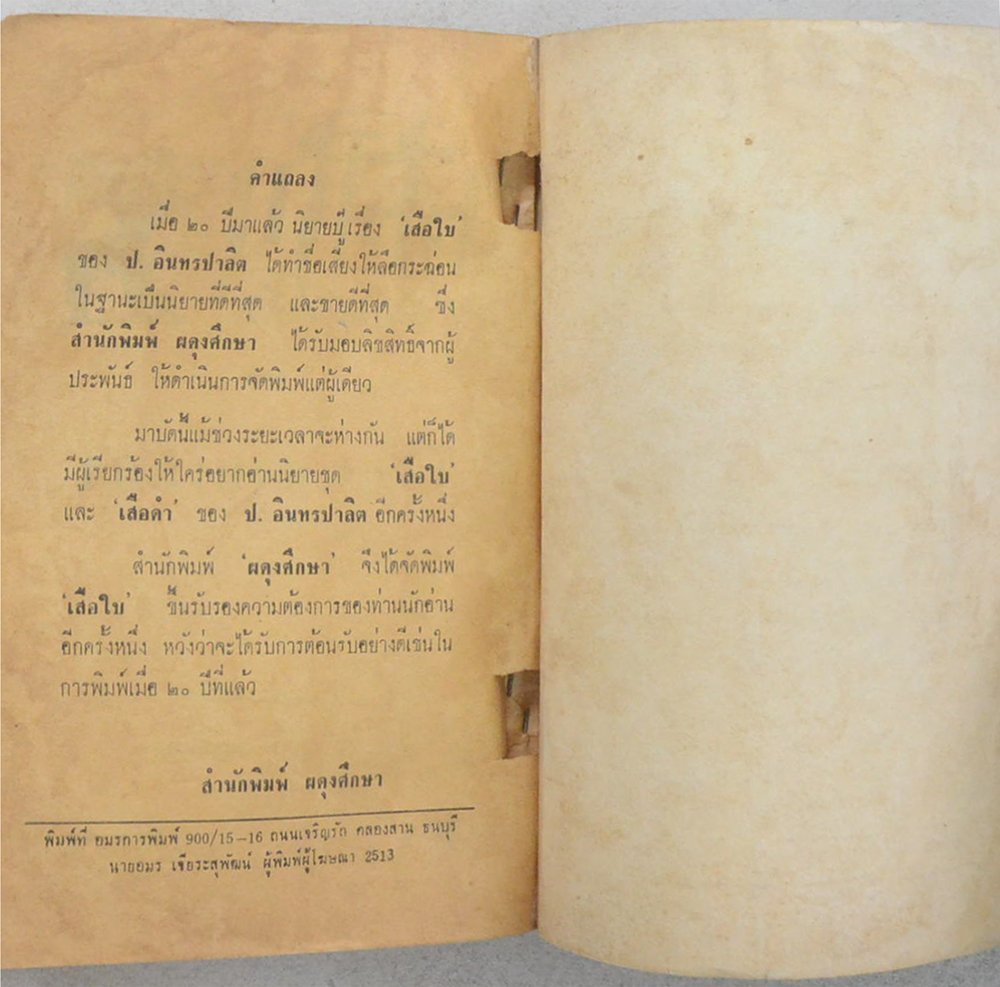 คำแถลง
เมื่อ ๒๐ ปีมาแล้ว นิยายบู๊เรื่อง 'เสือใบ'
ของ ป. อินทรปาลิต ได้ทำชื่อเสียงให้ลือกระฉ่อน
ในฐานะเป็นนิยายที่ดีที่สุด และขายดีที่สุด ซึ่ง
สำนักพิมพ์ ผดุงศึกษา ได้รับมอบลิขสิทธิ์จากผู้
ประพันธ์ ให้ดำเนินการจัดพิมพ์แต่ผู้เดียว
มาบัดนี้แม้ช่วงระยะเวลาจะห่างกัน แต่ก็ได้
มีผู้เรียกร้องให้ใคร่อยากอ่านนิยายชุด 'เสือใบ'
และ 'เสือดำ' ของ ป. อินทรปาลิต อีกครั้งหนึ่ง
สำนักพิมพ์ 'ผดุงศึกษา' จึงได้จัดพิมพ์
'เสือใบ' ขึ้นรับรองความต้องการของท่านนักอ่าน
อีกครั้งหนึ่ง หวังว่าจะได้รับการต้อนรับอย่างดีเช่นใน
การพิมพ์เมื่อ ๒๐ ปีที่แล้ว
สำนักพิมพ์ ผดุงศึกษา
พิมพ์ที่ อมรการพิมพ์ 900/15-16 ถนนเจริญรัถ คลองสาน ธนบุรี
นายอมร เจียระสุพัฒน์ ผู้พิมพ์ผู้โฆษณา 2513